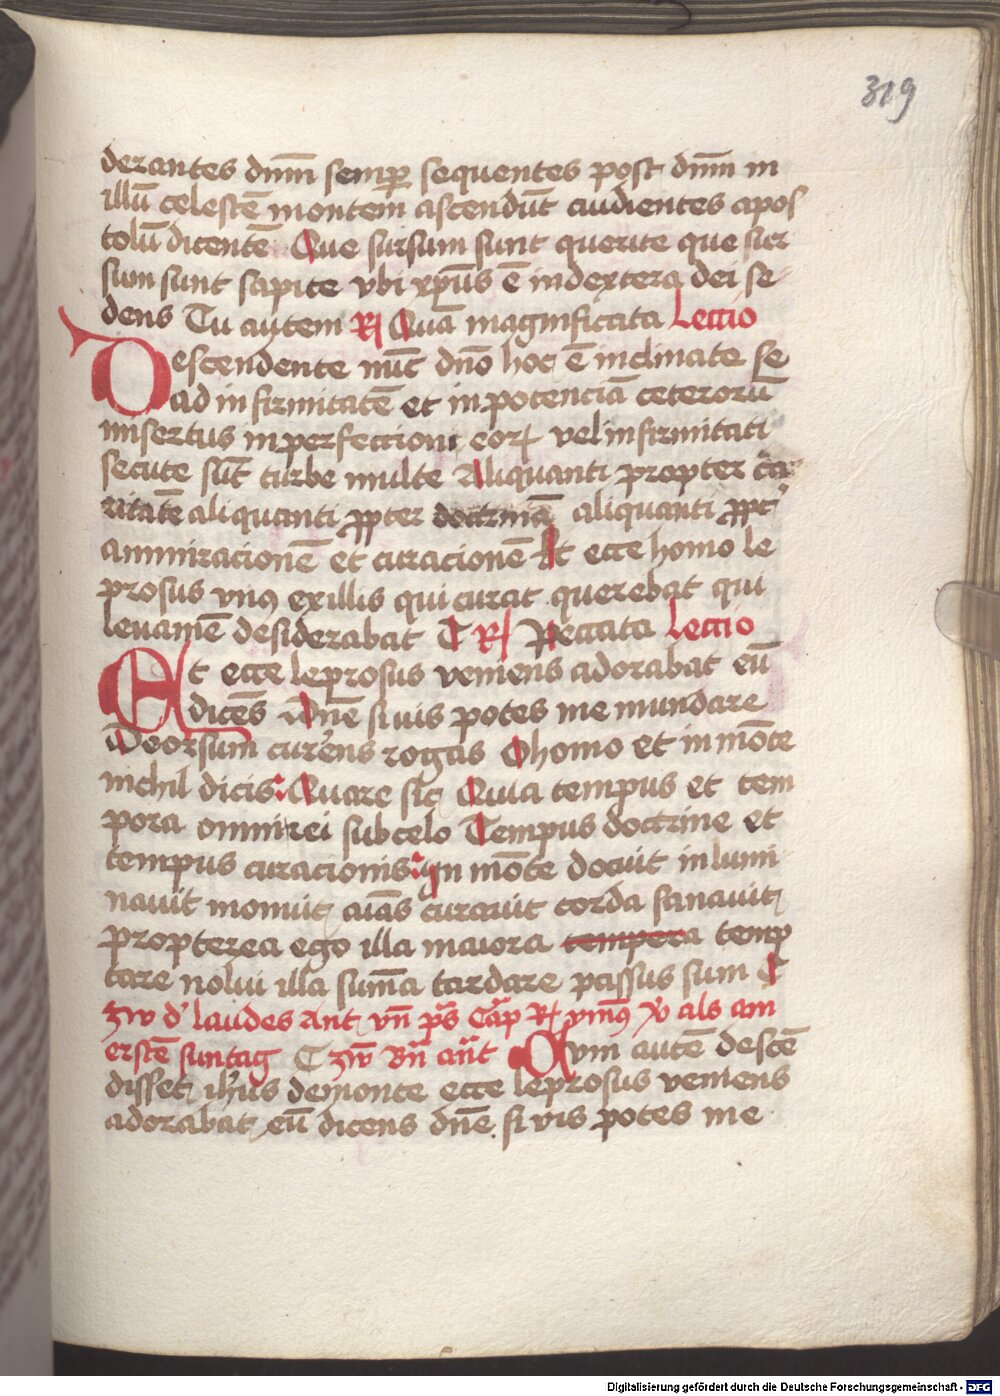 319
derantes dnm̄ semꝑ sequentes post dnm̄ in
illū celestē montem ascendūt audientes apos
tolū dicentē Que sursum sunt querite que sur
sum sunt sapite vbi xp̄us ē indextera dei se
dens Tu autem R Quā magnificata Lectio
Descendente nūc dno̅ hoc ē inclinate se
ad infirmitatē et inpotenciā ceterorū
misertus inperfectioni eoꝝ vel infirmitati
secute sūt turbe multe Aliquanti propter ca
ritatē aliquanti ꝓpter doctrinā aliquanti ꝓpt̾
ammiracionē et curacionē Et ecce homo le
prosus vnꝰ exillis qui curat querebat qui
leuamē desiderabat T R Peccata Lectio
Et ecce leprosus veniens adorabat eū
dicēs Dn̄e si uis potes me mundare
Deorsum cur̾ens rogas O homo et in mōte
nichil dicis Quare sic Quia tempus et tem
pora omni rei sub celo Tempus doctrine et
tempus curacionis In mōte docuit inlumi
nauit monuit aīas curauit corda sanauit
propterea ego illa maiora tempera temp
tare nolui illa sum̄a tardare passus sum T
zw d' laudes Ant vn̄ ps Cap R ymꝰ v als am
erstē suntag T zw Bn̄ ant Cum autē descē
disset ih̄us demonte ecce leprosus veniens
adorabat eū dicens dn̄e si vis potes me
Digitalisierung gefördert durch die Deutsche Forschungsgemeinschaft - DFG